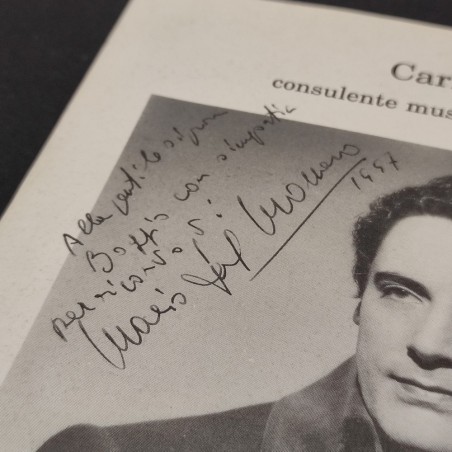 Car
consulente mus
Alla gentile signora
Boggio con simpatia
per ricordo di:
Mario Del Monaco
1957